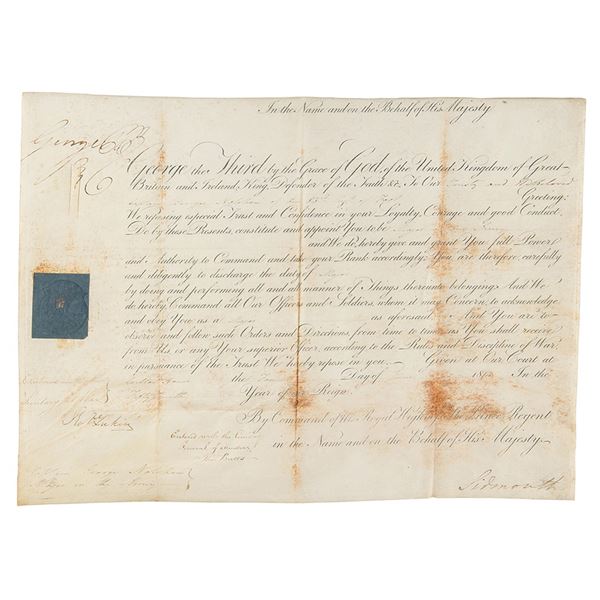 In the Name and on the Behalf of His Majesty
George P R
George the Third by the Grace of God, of the United Kingdom of Great
Britain and Ireland, King, Defender of the Faith &c. To Our Trusty and Wellbeloved
George Greeting:
We reposing especial Trust and Confidence in your Loyalty, Courage and good Conduct,
Do by these Presents, constitute and appoint You to be Major
and We do hereby give and grant You full Power
and Authority to Command and take your Rank accordingly. You are therefore carefully
and diligently to discharge the duty of Major
by doing and performing all and all manner of Things thereunto belonging. And We
do hereby Command all Our Officers and Soldiers, whom it may Concern, to acknowledge
and obey You as a Major as aforesaid And You are to
observe and follow such Orders and Directions, from time to time, as You shall receive
from Us or any Your superior Officer, according to the Rules and Discipline of War,
in pursuance of the Trust We hereby repose in you. Given at Our Court at
the Day of 181 In the
Year of Our Reign.
By Command of His Royal Highness The Prince Regent
in the Name and on the Behalf of His Majesty.
Entered with the
General of
Sidmouth
George
Major in the Army